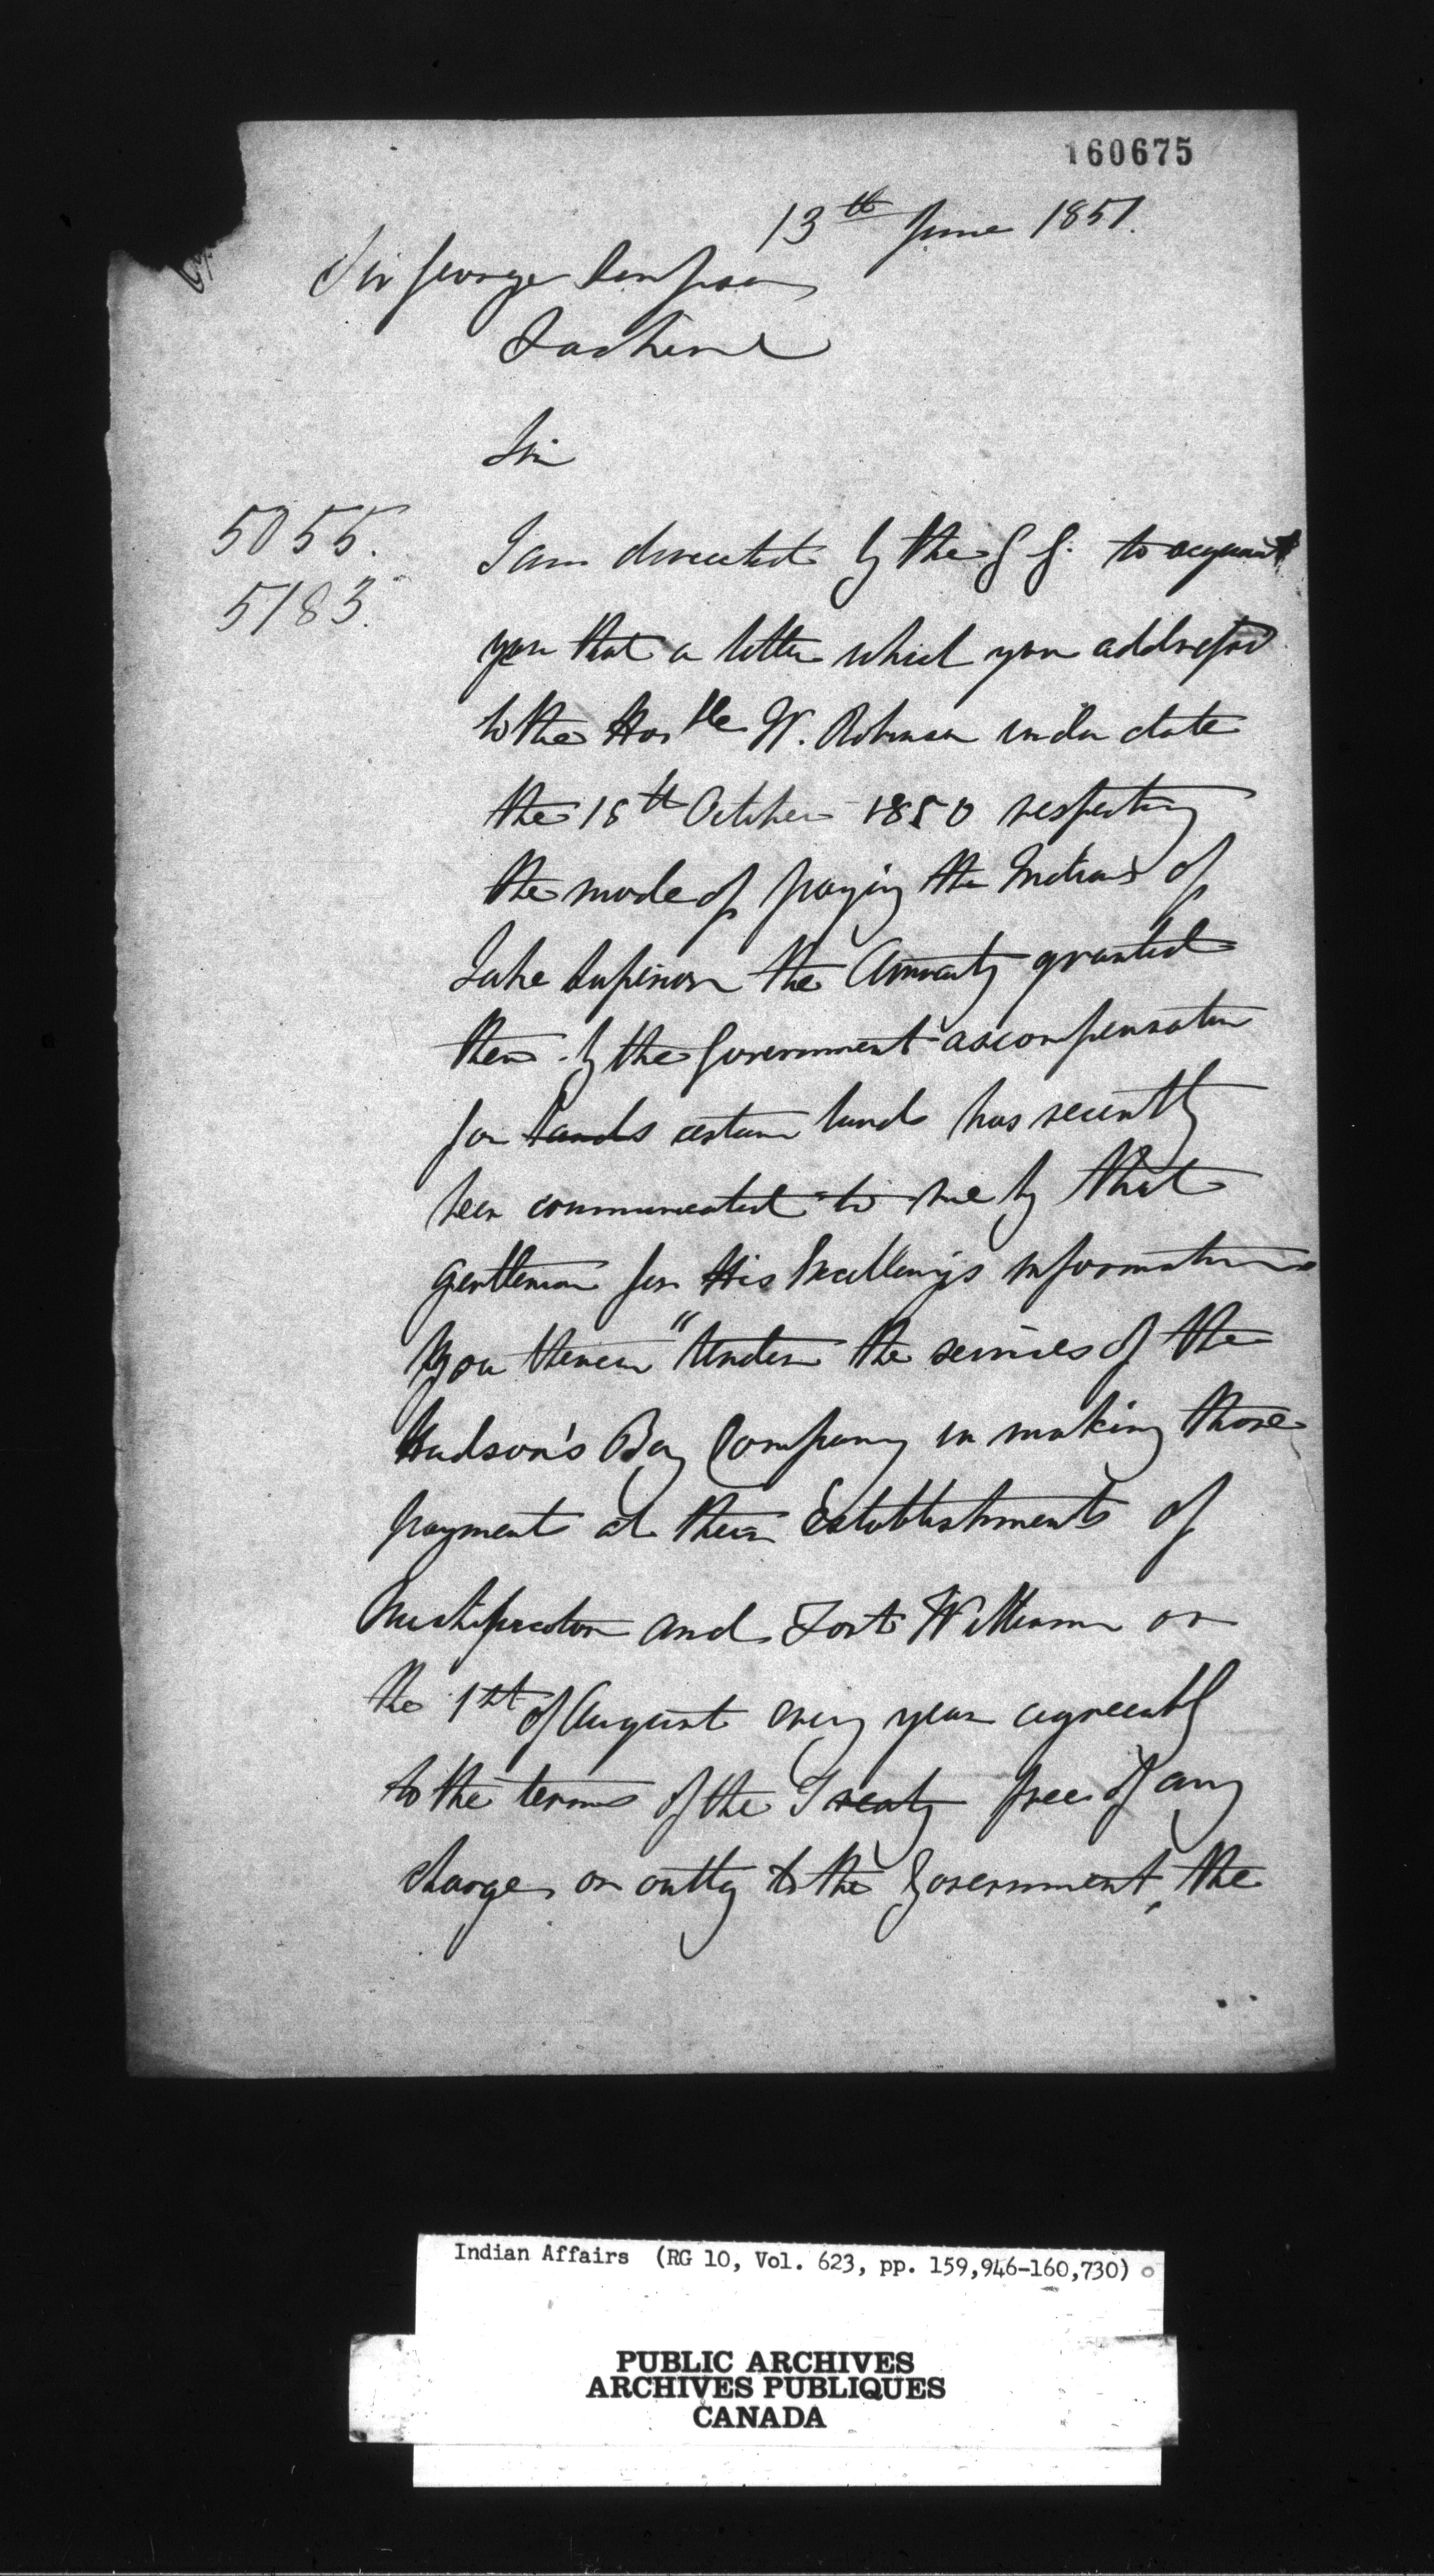 160675
13th June 1851.
Sir George Simpson
Lachine
Sir
5055.
5183.
I am directed by the G G. to acquaint
you that a letter which you addressed
to the Honble W. Robinson under date
the 18th October 1850 respecting
the mode of paying the Indians of
Lake Superior the Annuity granted
them by the Government as compensation
for lands certain lands has recently
been communicated to me by that
gentleman for His Excellency's information
You therein "tender the services of the
Hudson's Bay Company in making those
payments at their Establishments of
Michipicoton and Fort William on
the 1st of August every year agreeably
to the terms of the Treaty free of any
charge or outlay to the Government, the
Indian Affairs (RG 10, Vol. 623, pp. 159,946-160,730)
PUBLIC ARCHIVES
ARCHIVES PUBLIQUES
CANADA